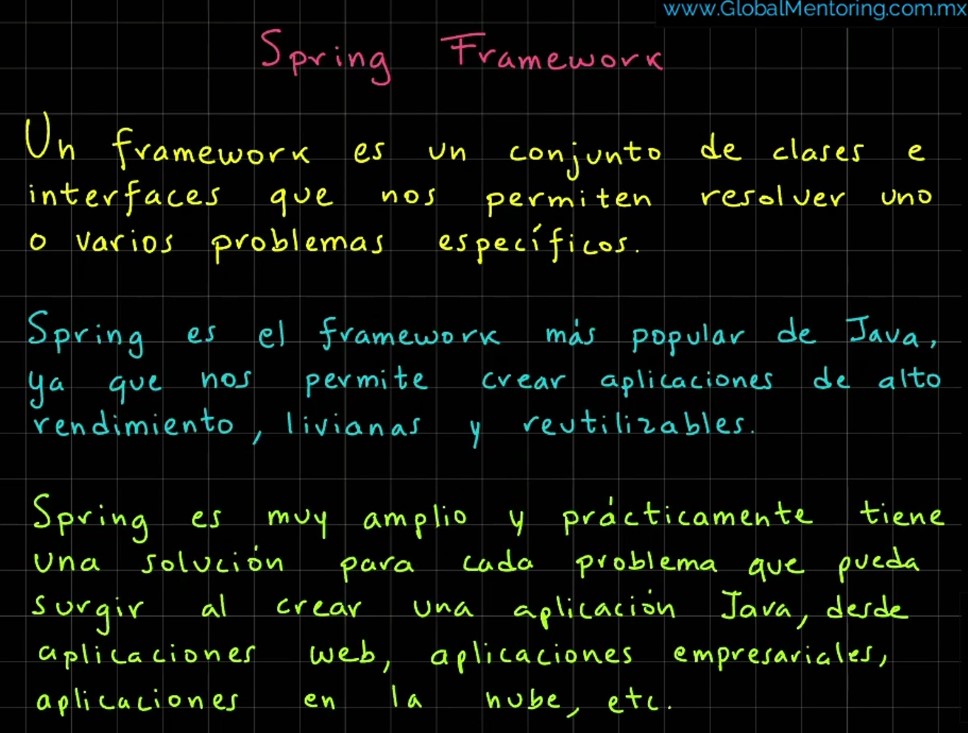 www.GlobalMentoring.com.mx
Spring Framework
Un framework es un conjunto de clases e
interfaces que nos permiten resolver uno
o varios problemas específicos.
Spring es el framework más popular de Java,
ya que nos permite crear aplicaciones de alto
rendimiento, livianas y reutilizables.
Spring es muy amplio y prácticamente tiene
una solución para cada problema que pueda
surgir al crear una aplicación Java, desde
aplicaciones web, aplicaciones empresariales,
aplicaciones en la nube, etc.